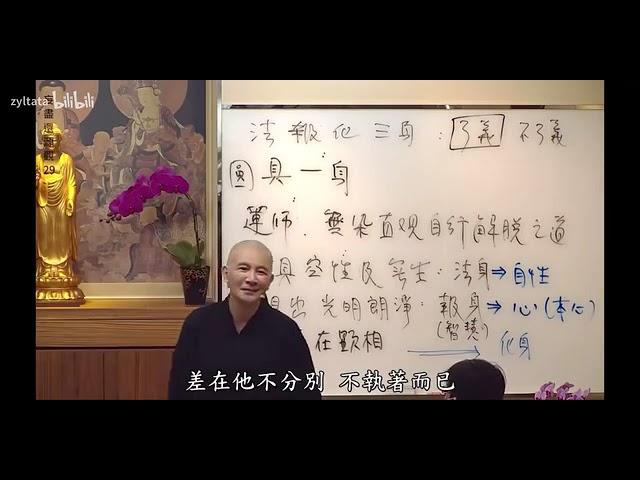 zyltata bilibili
妄盡還源觀 29
法報化三身：了義 不了義
圓具一身
蓮師．無染直观自行解脱之道
具空性及無生：法身⇒自性
光明朗淨：報身⇒心(本心)
(智慧)
在顯相 → 化身
差在他不分別 不執著而已